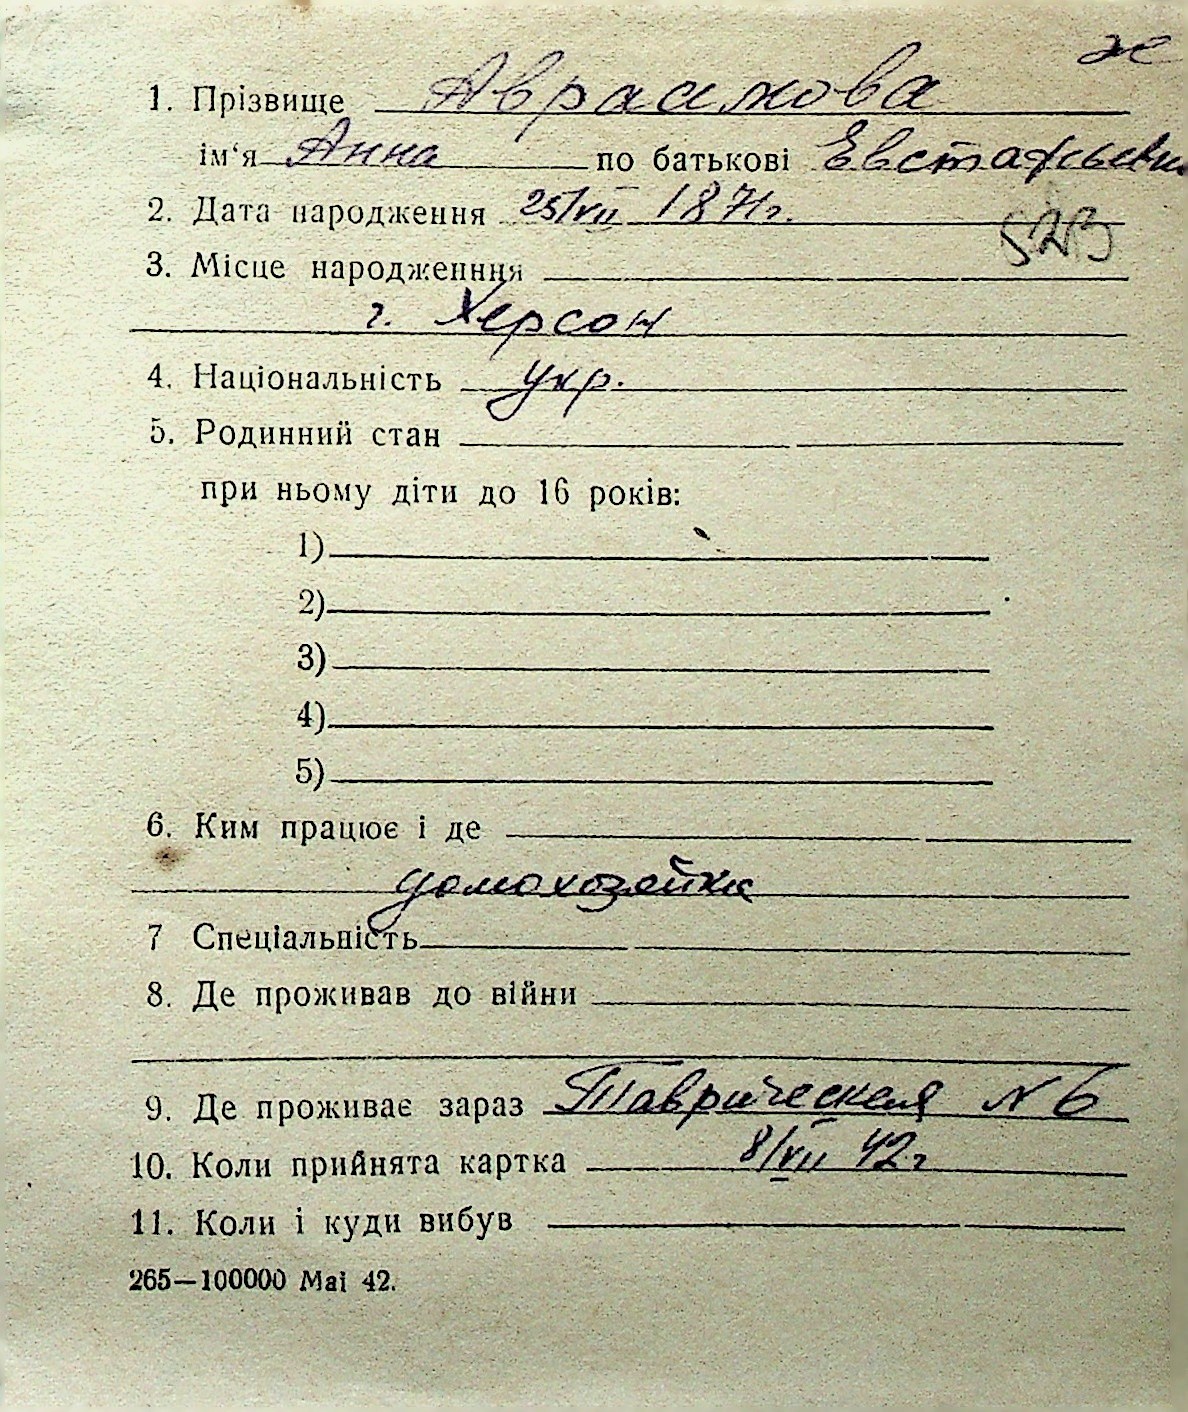 ж
1. Прізвище Аврасимова
ім‘я Анна по батькові Евстафьевн
2. Дата народження 25/VII 1871г.
3. Місце народженння
г. Херсон
4. Національність укр.
5. Родинний стан
при ньому діти до 16 років:
1)
2)
3)
4)
5)
6. Ким працює і де
домохозяйка
7 Спеціальність
8. Де проживав до війни
9. Де проживає зараз Таврическая N 6
10. Коли прийнята картка 8/VII 42г
11. Коли і куди вибув
265—100000 Mai 42.